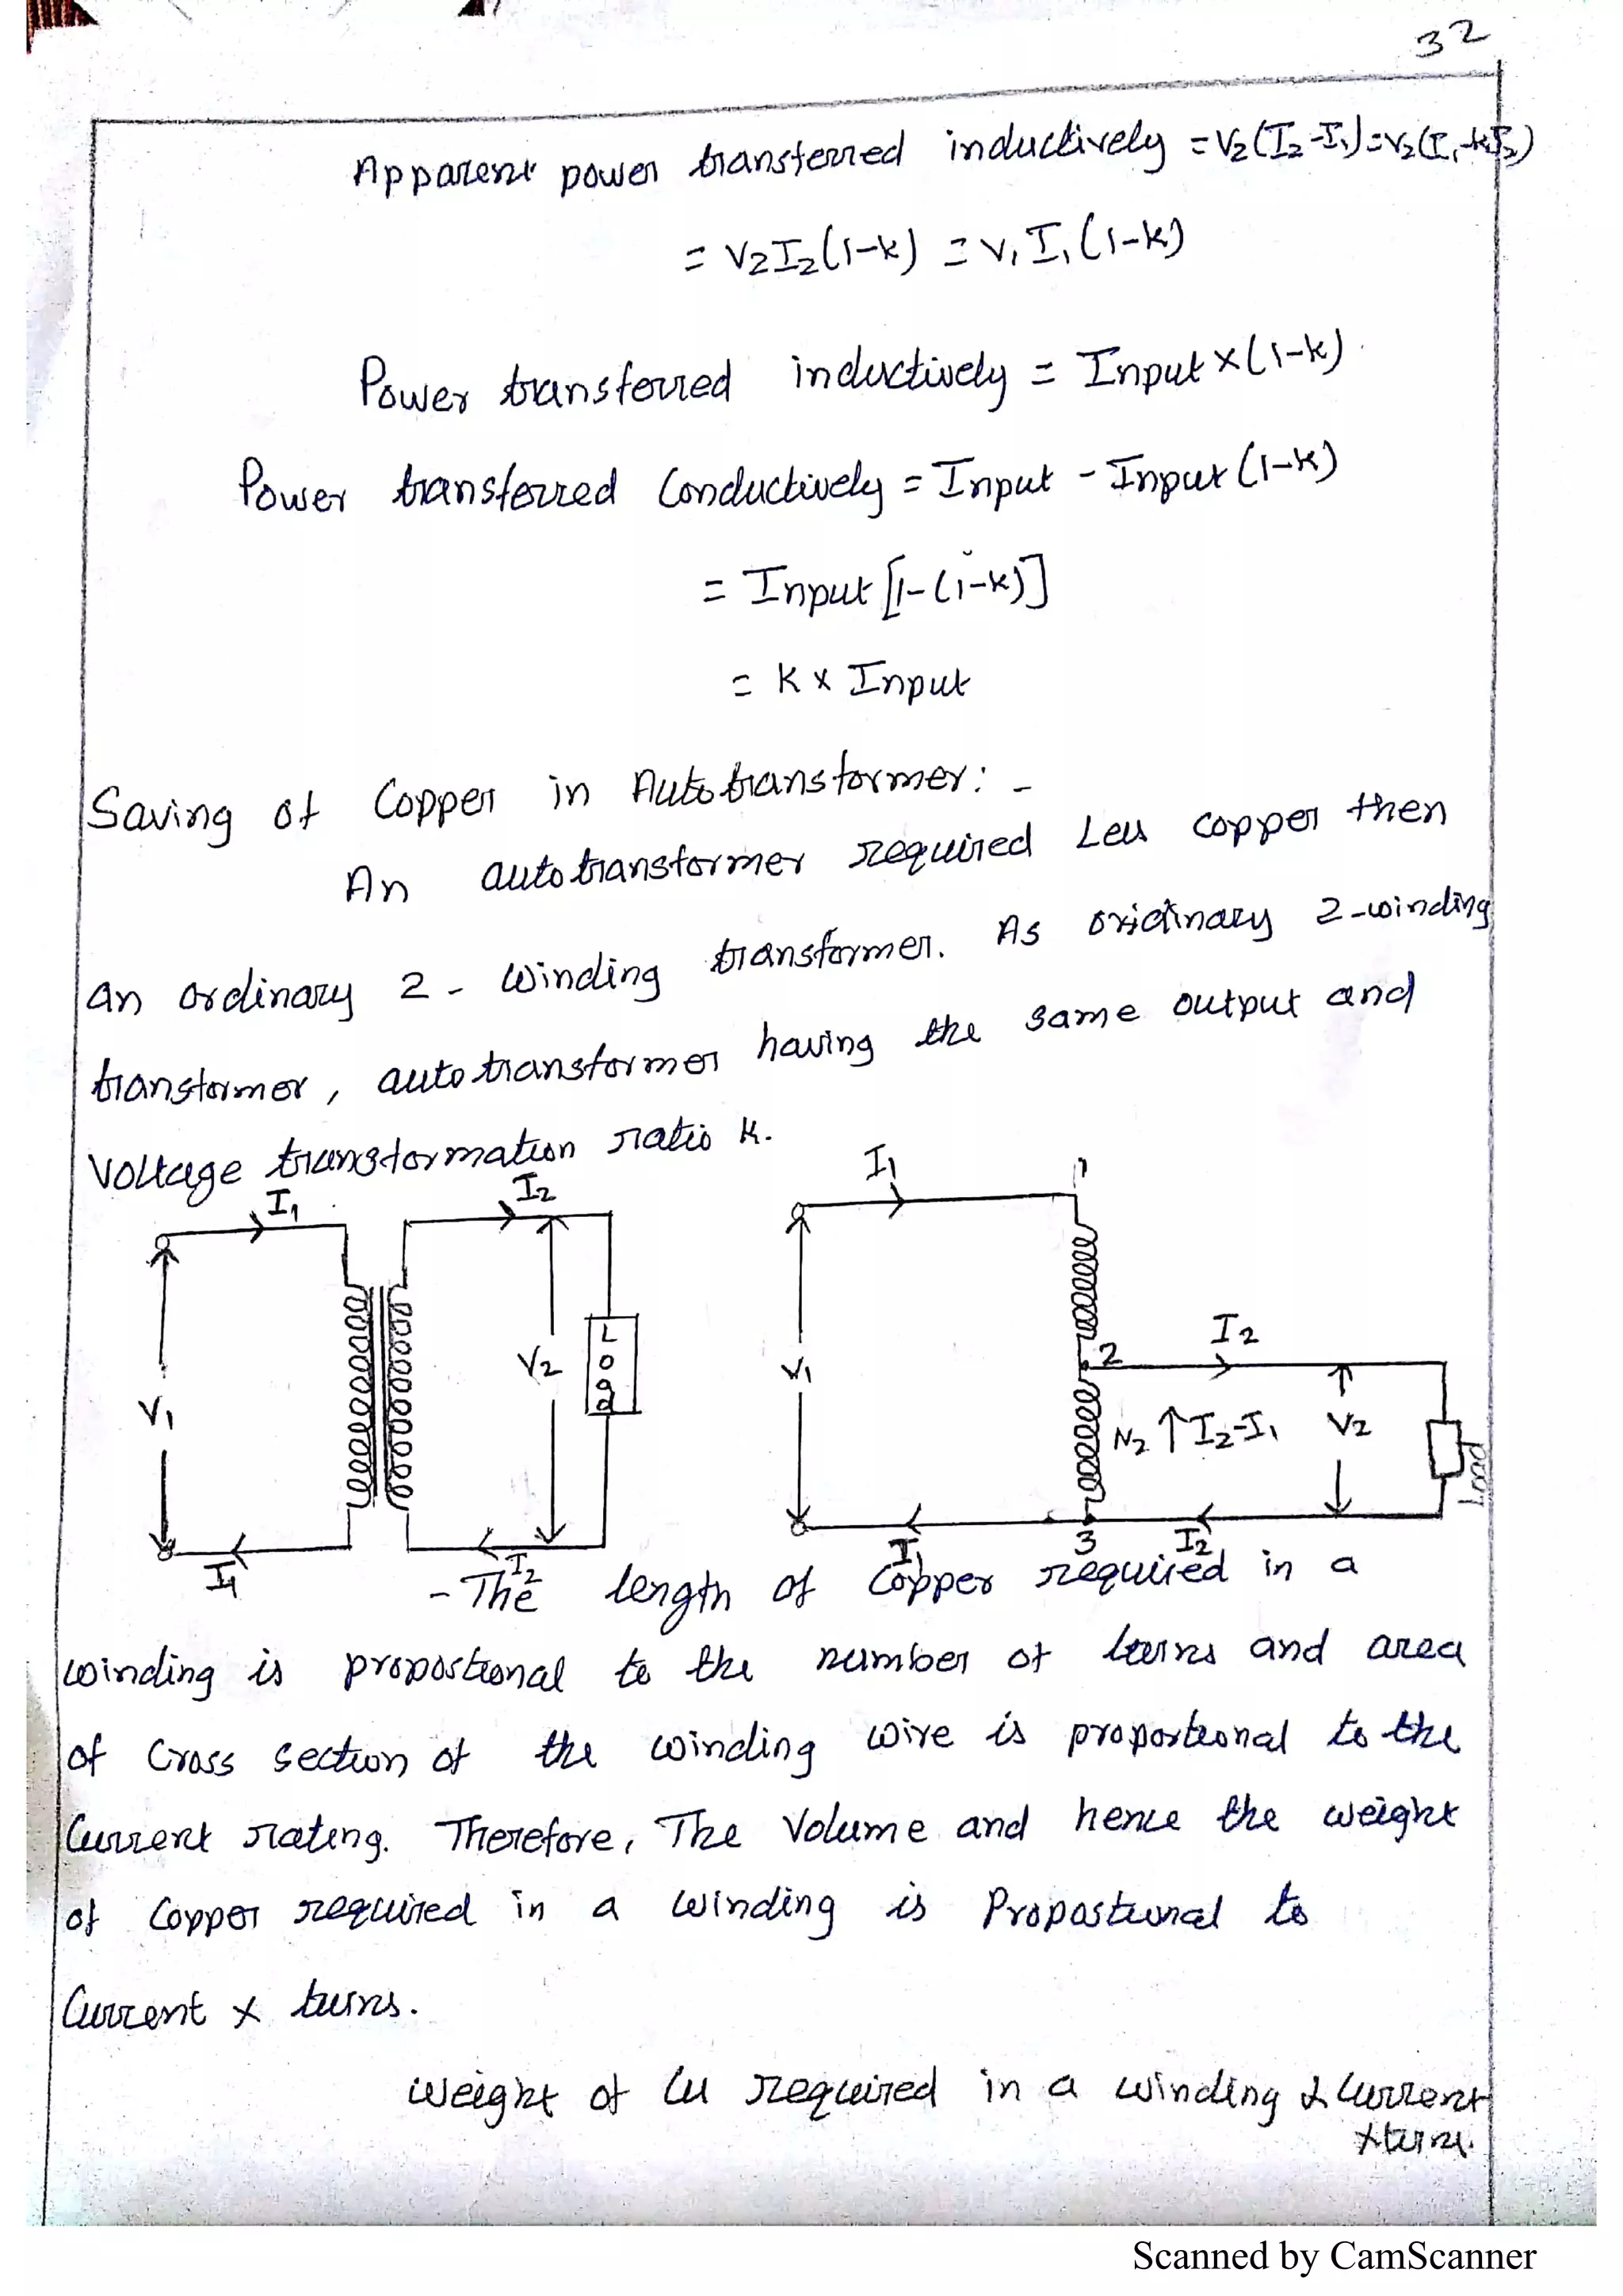 32
Apparent power transferred inductively = V2(I2-I1)=V2(I1-kI2)
= V2I2(1-k) = V1I1(1-k)
Power transferred inductively = Input x(1-k).
Power transferred Conductively = Input - Input (1-k)
= Input [1-(1-k)]
= K x Input
Saving of Copper in Autotransformer: -
An autotransformer required Less copper then
an ordinary 2 - Winding transformer. As oridinary 2-winding
transformer, autotransformer having the same output and
Voltage transformation ratio K.
I1 I2 I1 1
V1 V2 Load V1 2 I2
N2 ↑ I2-I1 V2 Load
I1 I2 I1 3 I2
- The length of Copper required in a
winding is proportional to the number of turns and area
of Cross Section of the winding wire is proportional to the
Current rating. Therefore, The Volume and hence the weight
of Copper required in a winding is Proportional to
Current x turns.
Weight of Cu required in a winding α Current
x turn.
Scanned by CamScanner